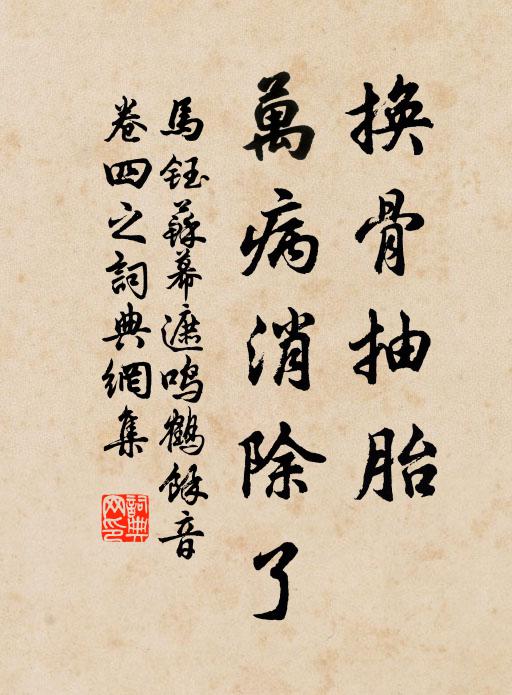 換骨抽胎
萬病消除了
馬鈺蘇幕遮鳴鶴餘音
卷四之詞典網集
詞典
网印